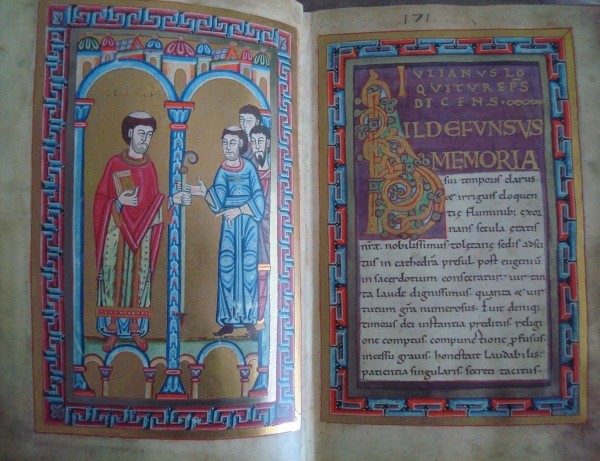 171
IVLIANVS LO
QVITVR EPS
DICENS
ILDEFVNSVS
MEMORIA
sui temporis clarus.
& irriguis eloquen
tię fluminib; exor
nans secula etatis
nrę. nobilissimus toletane sedis adsci
tus in cathedra presul. post eugeniū
in sacerdotium consecratur. vir tan
ta laude dignissimus. quanta & vir
tutum gra numerosus. Fuit deniq;
timoris dei instantia preditus. religi
one comptus. compunctione profusus.
incessu gravis. honestate laudabilis.
patientia singularis. secreti tacitus.